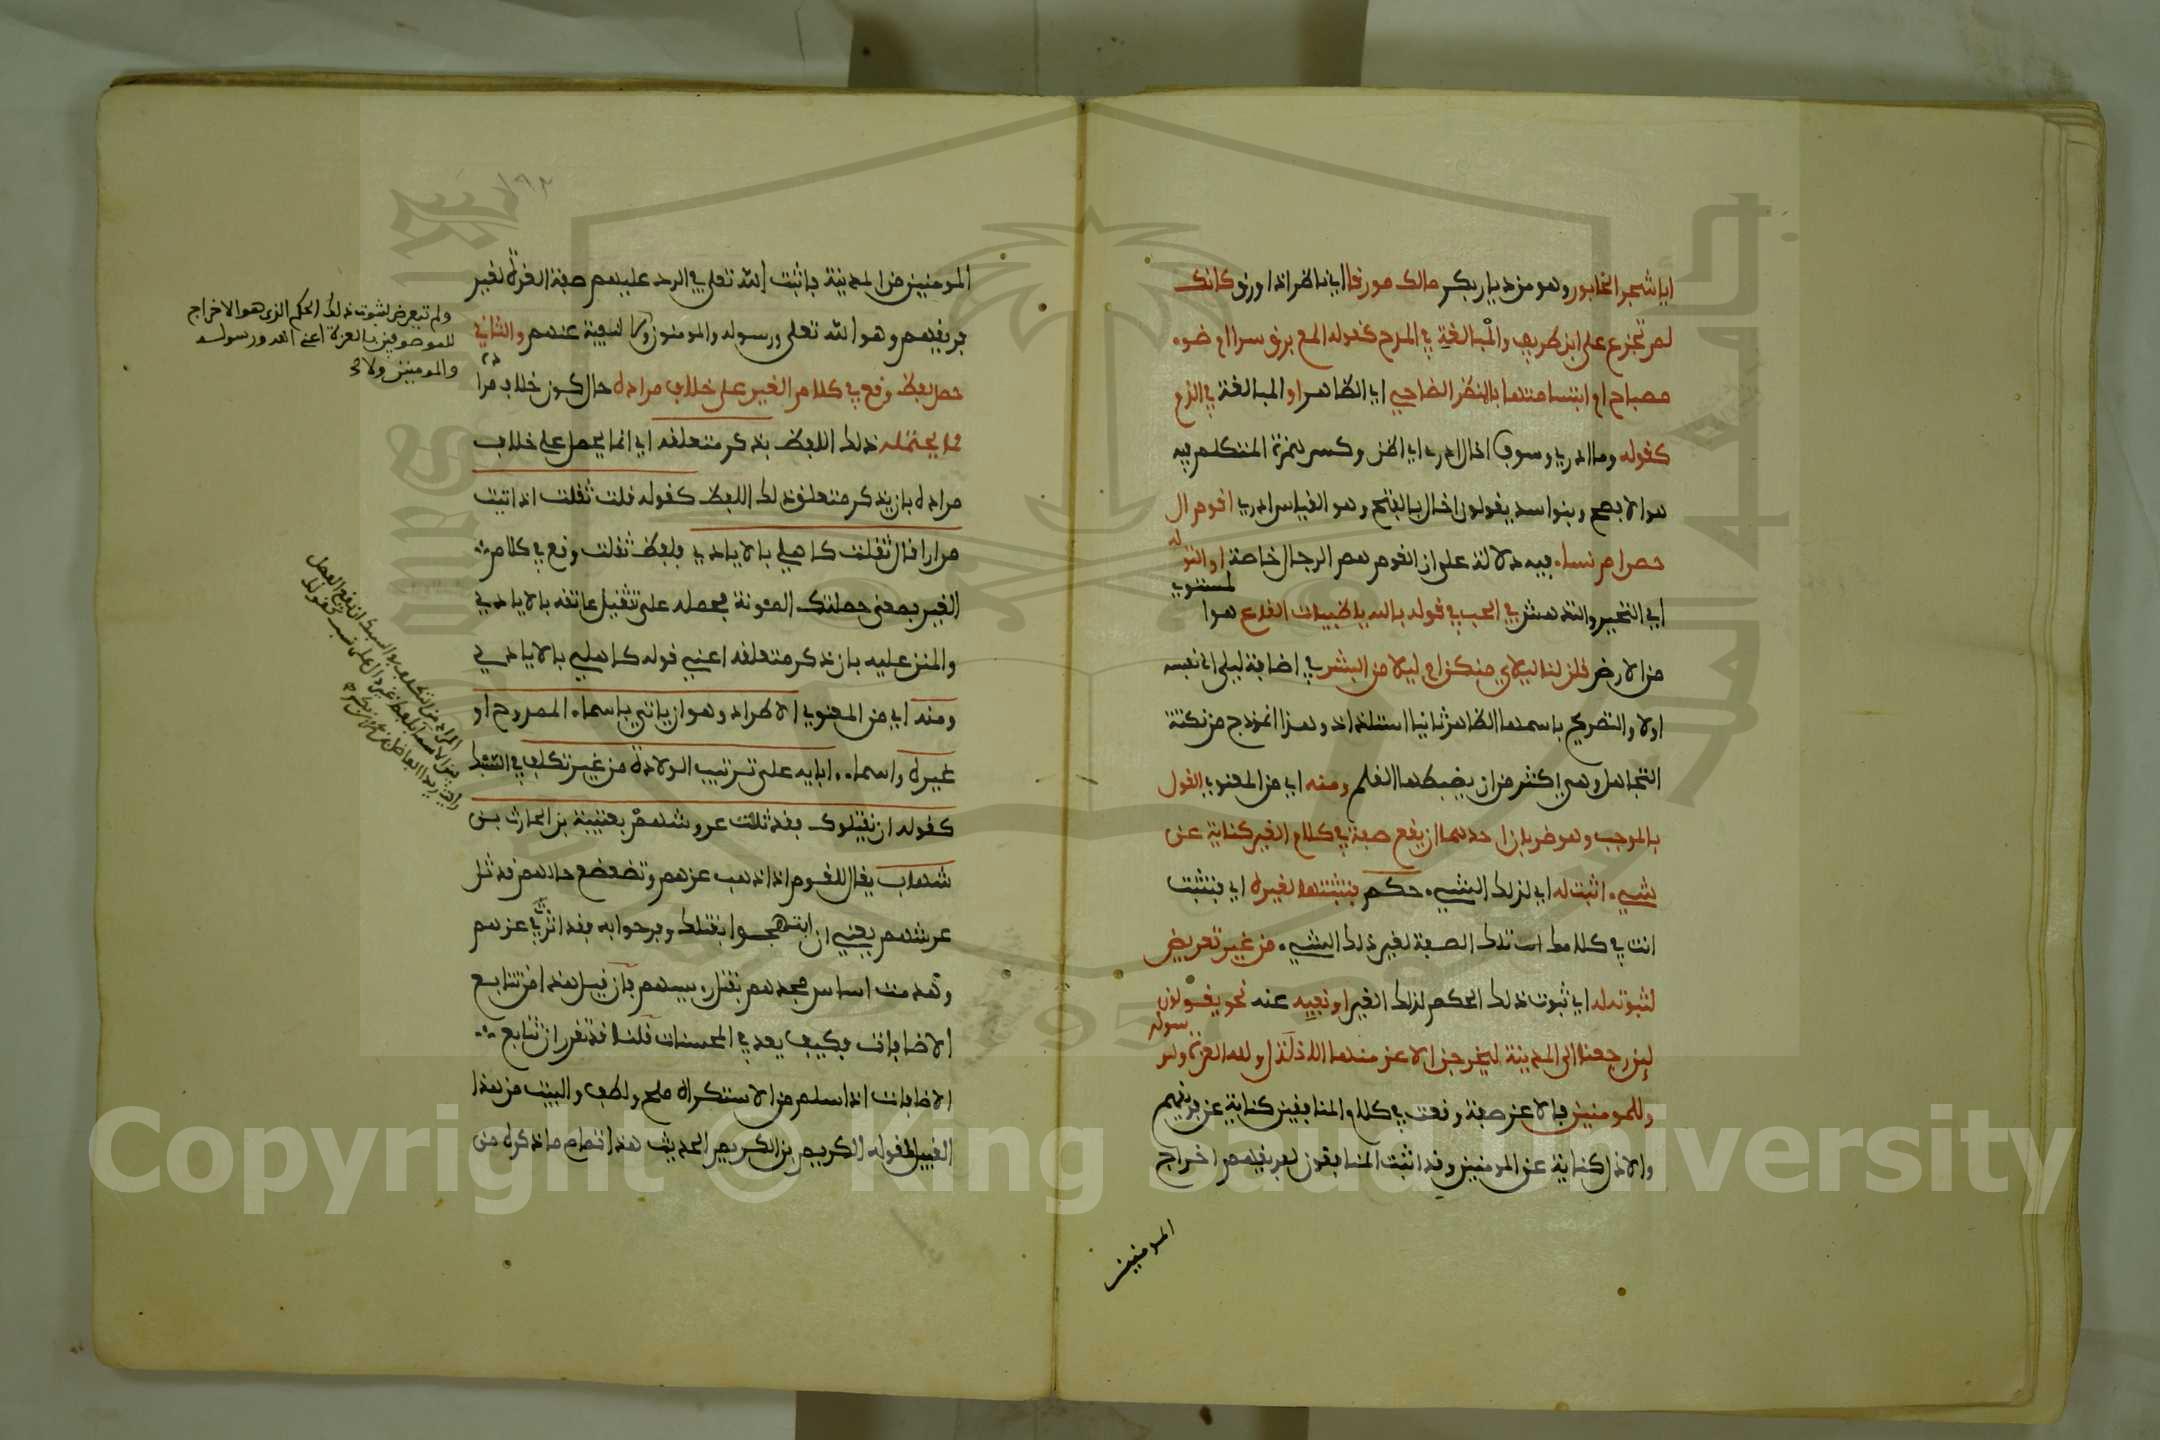 ايا شجر الخابور وهو من ديار بكر مالك مورقا اي ناظرا ذا ورق كانك
لم تجزع على ابن طريف والمبالغة في المدح كقوله المع برق سرا ام ضوء
مصباح ام ابتسامتها بالمنظر الضاحي اي الظاهر او المبالغة في الذم
كقوله وما ادري وسوف اخال ادري اي اظن وكسر همزة المتكلم فيه
هو الافصح وبنوا اسد يقولون اخال بالفتح وهو القياس ادري اقوم ال
حصن ام نساء فيه دلالة على ان القوم هم الرجال خاصة او التوله
اي التحير والتدهش في الحب في قوله بالله يا ظبيات القاع هو المستوي
من الارض قلن لنا ليلاي منكن ام ليلى من البشر في اضافة ليلى الى نفسه
اولا والتصريح باسمها الظاهر ثانيا استلذاذ وهذا انموذج من نكتة
التجاهل وهي اكثر من ان يضبطها القلم ومنه اي من المعنوي القول
بالموجب وهو ضربان احدهما ان يقع صفة في كلام الغير كناية عن
شيء اثبت له اي لذلك الشيء حكم فتثبتها لغيره اي فتثبت
انت في كلامك تلك الصفة لغير ذلك الشيء من غير تعريض
لثبوته له اي ثبوت ذلك الحكم لذلك الغير او نفيه عنه نحو يقولون
لين رجعنا الى المدينة ليخرجن الاعز منها الاذل ولله العزة ولرسوله
وللمومنين فالاعز صفة وقعت في كلام المنافقين كناية عن فريقهم
والاذل كناية عن المومنين وقد اثبت المنافقون لفريقهم اخراج
المومنين
١٩٢
المومنين من المدينة فاثبت الله تعلى في الرد عليهم صفة العزة لغير
فريقهم وهو الله تعلى ورسوله والمومنون ولا لنفيه عنهم والثاني
حمل لفظ وقع في كلام الغير على خلاف مراده حال كون خلاف مراده
مما يحتمله ذلك اللفظ بذكر متعلقه اي انما يحمل على خلاف
مراده بان يذكر متعلق ذلك اللفظ كقوله قلت ثقلت اذ اتيت
مرارا قال ثقلت كاهلي بالايادي فلفظ ثقلت وقع في كلام
الغير بمعنى حملتك المئونة فحمله على تثقيل عاتقه بالايادي
والمنن عليه بان ذكر متعلقه اعني قوله كاهلي بالايادي
ومنه اي من المعنوي الاطراد وهو ان ياتي باسماء الممدوح او
غيره واسماء ابايه على ترتيب الولادة من غير تكلف في السبك
كقوله ان يقتلوك فقد ثللت عروشهم بعتيبة بن الحارث بن
شهاب يقال للقوم اذا ذهب عزهم وتضعضع حالهم قد ثل
عرشهم يعني ان ابتهجوا بقتلك وفرحوا به فقد اثرت في عزهم
وهدمت اساس مجدهم بقتل رييسهم فان قيل هذا من تتابع
الاضافات فكيف يعد في المحسنات قلنا قد تقرر ان تتابع
الاضافات اذا سلم من الاستكراه ملح ولطف والبيت من هذا
القبيل كقوله الكريم بن الكريم الحديث هذا تمام ما ذكره من
ولم تتعرض لثبوت ذلك الحكم الذي هو الاخراج
للموصوفين بالعزة اعني الله ورسوله
والمومنين ولا